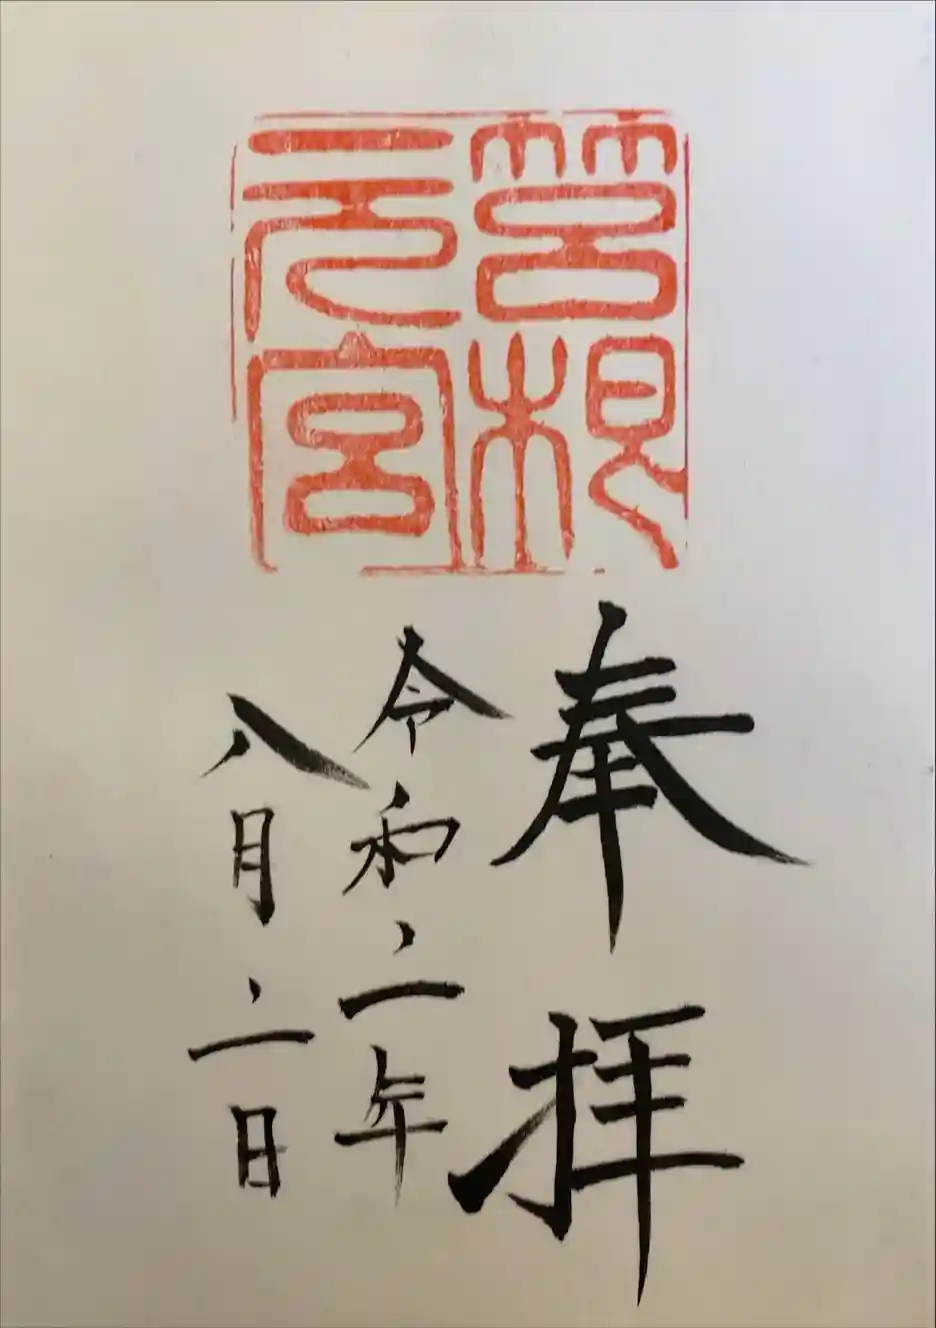 筥根
元宮
奉拝
令和二年
八月二日